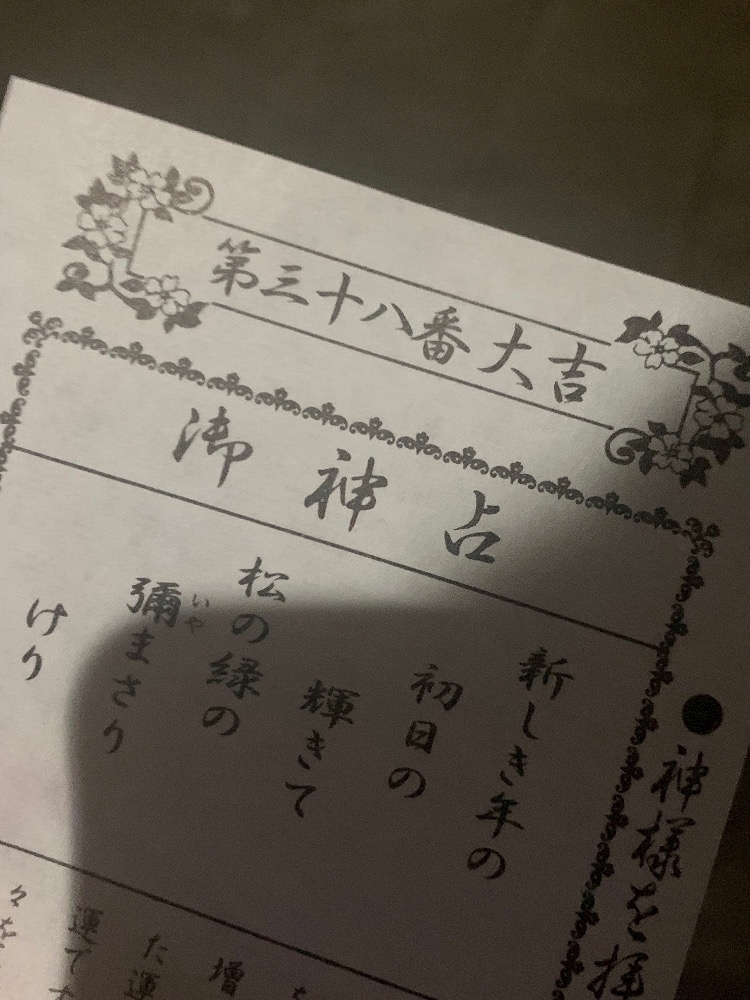 第三十八番大吉
御神占
新しき年の
初日の
輝きて
松の緑の
彌まさり
いや
けり
●神様を拝
増
た運
運で
々を